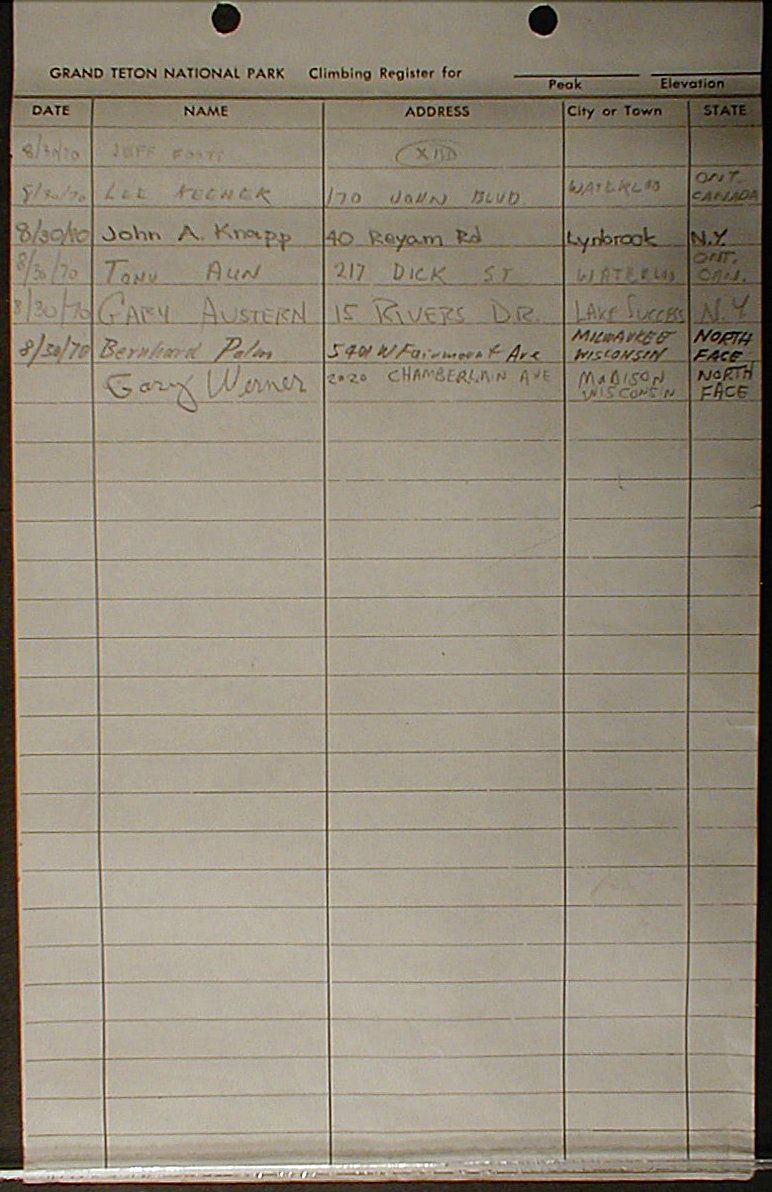 GRAND TETON NATIONAL PARK Climbing Register for
Peak Elevation
DATE NAME ADDRESS City or Town STATE
8/30/70 JEFF FOOTT
8/30/70 LEE KEENER 170 JOHN BLVD WATERLOO ONT. CANADA
8/30/70 John A. Knapp 40 Royam Rd Lynbrook N.Y.
8/30/70 TONY AUN 217 DICK ST WATERLOO ONT. CAN.
8/30/70 GARY AUSTERN 15 RIVERS DR. LAKE SUCCESS N.Y
8/30/70 Bernhard Palm 5401 W Fairmount Ave MILWAUKEE WISCONSIN NORTH FACE
Gary Werner 2020 CHAMBERLAIN AVE MADISON WISCONSIN NORTH FACE